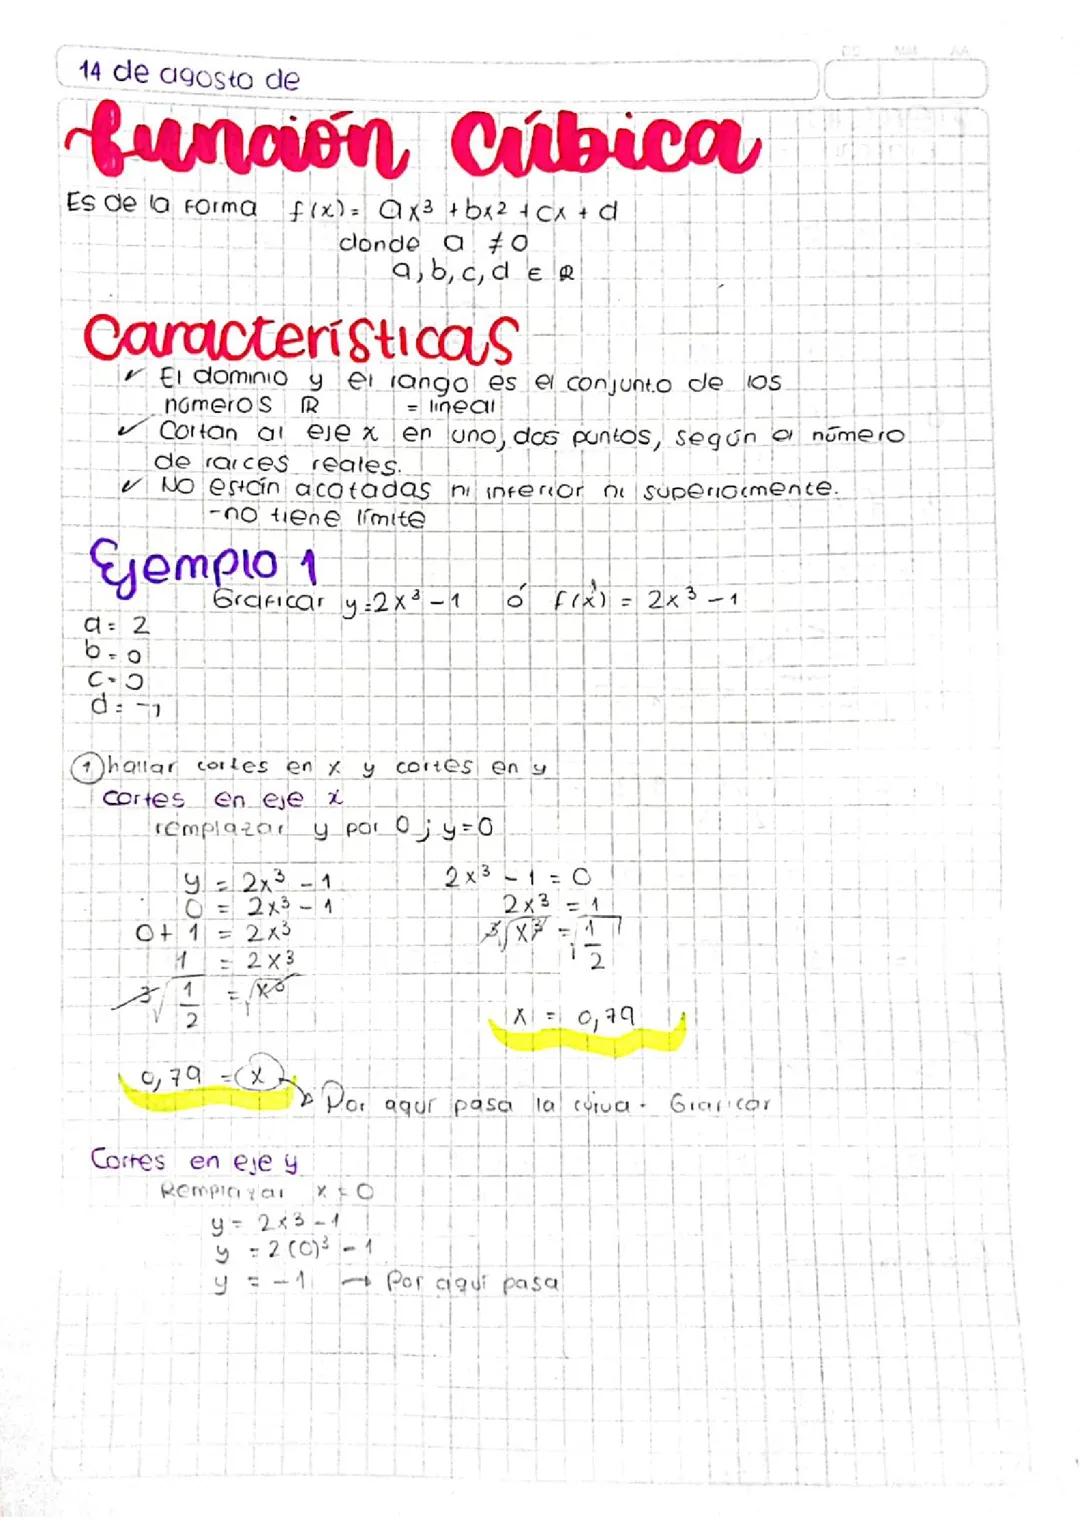 DD MM AA
14 de agosto de
función Cúbica
Es de la forma f(x) = ax³ + bx² + cx + d
donde a ≠ 0
a, b, c, d ∈ ℝ
Características
✓ El dominio y el rango es el conjunto de los
números ℝ = lineal
✓ Cortan al eje x en uno, dos puntos, según el número
de raíces reales.
✓ No están acotadas ni inferior ni superiormente.
-no tiene límite
Ejemplo 1
Graficar y=2x³-1 ó f(x) = 2x³-1
a= 2
b=0
c=0
d=-1
① hallar cortes en x y cortes en y
cortes en eje x
remplazar y por 0 ; y=0
y = 2x³ - 1
0 = 2x³ - 1
0+1 = 2x³
1 = 2x³
³√1/2 = √x³
0,79 = x → Por aquí pasa la curva. Graficar
2x³ - 1 = 0
2x³ = 1
³√x³ = √1/2
x = 0,79
Cortes en eje y
Remplazar x = 0
y = 2x3-1
y = 2(0)³ - 1
y = -1 → Por aquí pasa